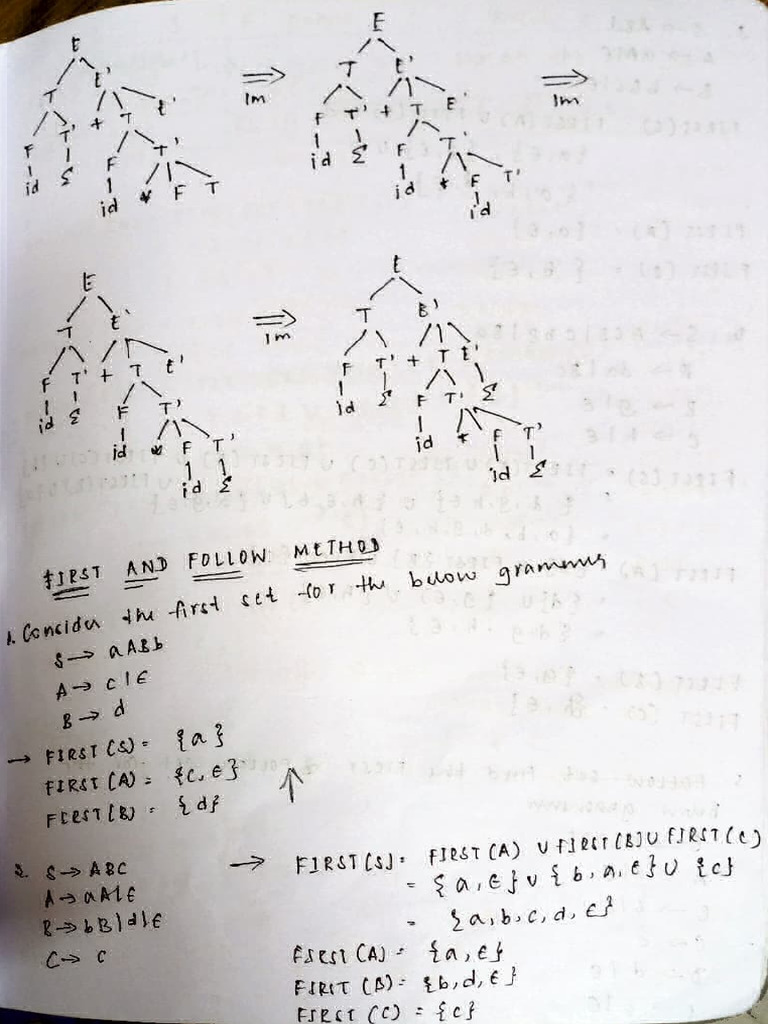 E E
T E' ⟹ T E' ⟹
F T' + T E' lm F T' + T E' lm
id Σ F T' id Σ F T'
id * F T id * F T'
id
E E
T E' ⟹ T B'
F T' + T E' lm F T' + T E'
id Σ F T' id Σ F T' Σ
id * F T' id * F T'
id Σ id Σ
FIRST AND FOLLOW METHOD
1. Consider the first set for the below grammus
S → aABb
A → c|ϵ
B → d
→ FIRST(S) = {a}
FIRST(A) = {c,ϵ} ↑
FIRST(B) = {d}
2. S → ABC → FIRST(S) = FIRST(A) ∪ FIRST(B) ∪ FIRST(C)
A → aA|ϵ = {a,ϵ} ∪ {b,a,ϵ} ∪ {c}
B → bB|d|ϵ = {a,b,c,d,ϵ}
C → c FIRST(A) = {a,ϵ}
FIRST(B) = {b,d,ϵ}
FIRST(C) = {c}